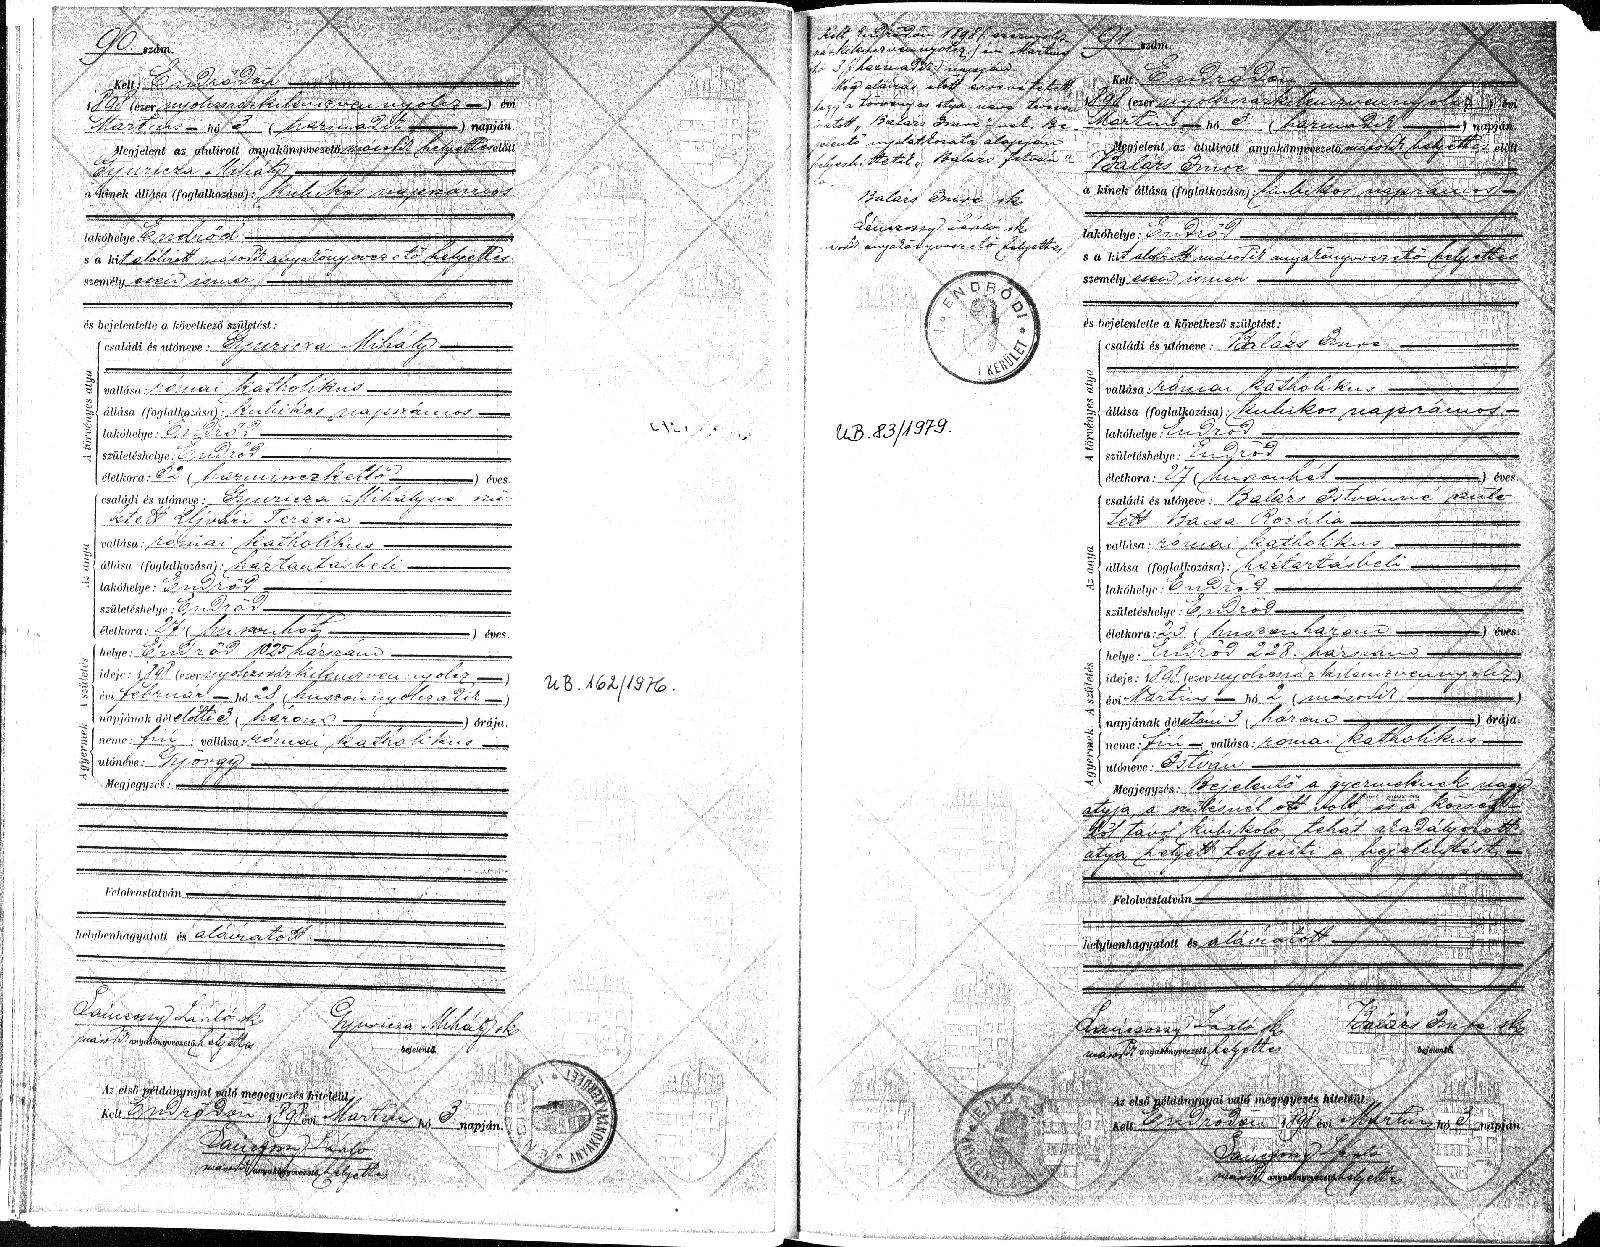 90 szám.
Kelt: Endrődön
1898 (ezer nyolczszázkilenczvennyolcz) évi
Martius hó 3 (harmadik) napján.
Megjelent az alulirott anyakönyvvezető másodk helyettes előtt
Gyuricza Mihály
a kinek állása (foglalkozása): kubikos napszámos
lakóhelye: Endrőd
s a kit alólirott másodk anyakönyvvezető helyettes
személyesen ismer,
és bejelentette a következő születést:
A törvényes atya
családi és utóneve: Gyuricza Mihály
vallása: római katholikus
állása (foglalkozása): kubikos napszámos
lakóhelye: Endrőd
születéshelye: Endrőd
életkora: 32 (harminczkettő) éves.
Az anya
családi és utóneve: Gyuricza Mihályné szü-
letett Ujvári Terézia
vallása: római katholikus
állása (foglalkozása): háztartásbeli
lakóhelye: Endrőd
születéshelye: Endrőd
életkora: 27 (huszonhét) éves.
A születés
helye: Endrőd 1025 házszám
ideje: 1898 (ezer nyolczszázkilenczvennyolcz)
évi február hó 28 (huszonnyolczadik)
napjának délelőtti 3 (három) órája.
A gyermek
neme: fiú; vallása: római katholikus
utóneve: György
Megjegyzés:
Felolvastatván
helybenhagyatott és aláiratott.
Lánczossy László sk
másodk anyakönyvvezető helyettes
Gyuricza Mihály sk
bejelentő.
Az első példánynyal való megegyezés hiteléül.
Kelt Endrődön, 1898 évi Martius hó 3 napján.
Lánczossy László
másodk anyakönyvvezető helyettes
UB. 162/1976.
Kelt, Endrődön 1898 (ezernyolcz-
százkilenczvennyolcz) évi Martius
hó 3 (harmadik) napján.
Balázs Imre sk
Lánczossy László sk
másodk anyakönyvvezető helyettes
ENDRŐDI
I KERÜLET
UB. 83/1979.
91 szám.
Kelt: Endrődön
1898 (ezer nyolczszázkilenczvennyolcz) évi
Martius hó 3 (harmadik) napján.
Megjelent az alulirott anyakönyvvezető másodk helyettes előtt
Balázs Imre
a kinek állása (foglalkozása): kubikos napszámos
lakóhelye: Endrőd
s a kit alólirott második anyakönyvvezető helyettes
személyesen ismer
és bejelentette a következő születést:
A törvényes atya
családi és utóneve: Balázs Imre
vallása: római katholikus
állása (foglalkozása): kubikos napszámos
lakóhelye: Endrőd
születéshelye: Endrőd
életkora: 27 (huszonhét) éves.
Az anya
családi és utóneve: Balázs Istvánné szüle-
tett Bacsa Rozália
vallása: római katholikus
állása (foglalkozása): háztartásbeli
lakóhelye: Endrőd
születéshelye: Endrőd
életkora: 23 (huszonhárom) éves.
A születés
helye: Endrőd 228. házszám
ideje: 1898 (ezer nyolczszázkilenczvennyolcz)
évi Martius hó 2 (második)
napjának délutáni 3 (három) órája.
A gyermek
neme: fiú; vallása: római katholikus
utóneve: István
Megjegyzés: Bejelentő a gyermeknek nagy
atyja a szülésnél ott volt és a község-
től távol kubikoló, tehát akadályozott
atya helyett teljesiti a bejelentést.
Felolvastatván
helybenhagyatott és aláiratott
Lánczossy László sk
másodk anyakönyvvezető helyettes
Balázs Imre sk
bejelentő.
Az első példánynyal való megegyezés hiteléül.
Kelt Endrődön 1898 évi Martius hó 3 napján.
Lánczossy László
másodk anyakönyvvezető helyettes